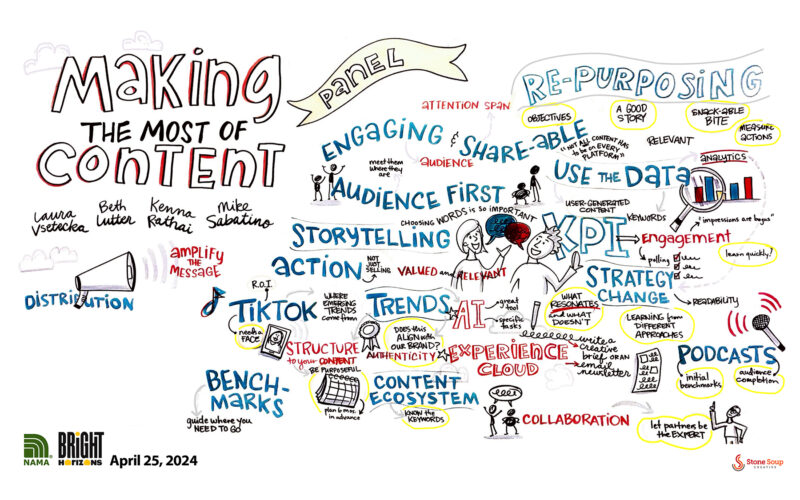 Making
THE MOST OF
CONTENT
Laura
Vsetecka
Beth
Lutter
Kenna
Rathai
Mike
Sabatino
AMPLIFY
the
MESSAGE
DISTRIBUTION
PANEL
RE-PURPOSING
ATTENTION SPAN
OBJECTIVES
A GOOD
STORY
SNACK-ABLE
BITE
MEASURE
ACTIONS
ENGAGING & SHARE-ABLE
AUDIENCE
"NOT ALL CONTENT HAS
to be on EVERY
PLATFORM"
RELEVANT
meet them
where they
are
USE THE DATA
ANALYTICS
AUDIENCE FIRST
USER-GENERATED
CONTENT
KEYWORDS
"impressions are bogus"
CHOOSING WORDS is so IMPORTANT
STORYTELLING
KPI
ENGAGEMENT
polling
learn quickly!
ACTION
NOT
JUST
SELLING
VALUED and RELEVANT
STRATEGY
CHANGE
READABILITY
R.O.I.
TIKTOK
WHERE
EMERGING
TRENDS
come from
need a
FACE
TRENDS
AI
great
tool
specific
tasks
WHAT
RESONATES
and WHAT
DOESN'T
LEARNING from
DIFFERENT
APPROACHES
Does this
ALIGN with
our BRAND?
AUTHENTICITY
STRUCTURE
to your CONTENT
BE PURPOSEFUL
plan 6 mos.
in advance
EXPERIENCE
CLOUD
write a
creative
brief OR AN
email
newsletter
PODCASTS
initial
benchmarks
audience
completion
BENCH-
MARKS
guide where you
NEED TO GO
CONTENT
ECOSYSTEM
KNOW the
KEYWORDS
COLLABORATION
let partners be
the EXPERT
NAMA
BRIGHT
HORIZONS
April 25, 2024
Stone Soup
CREATIVE